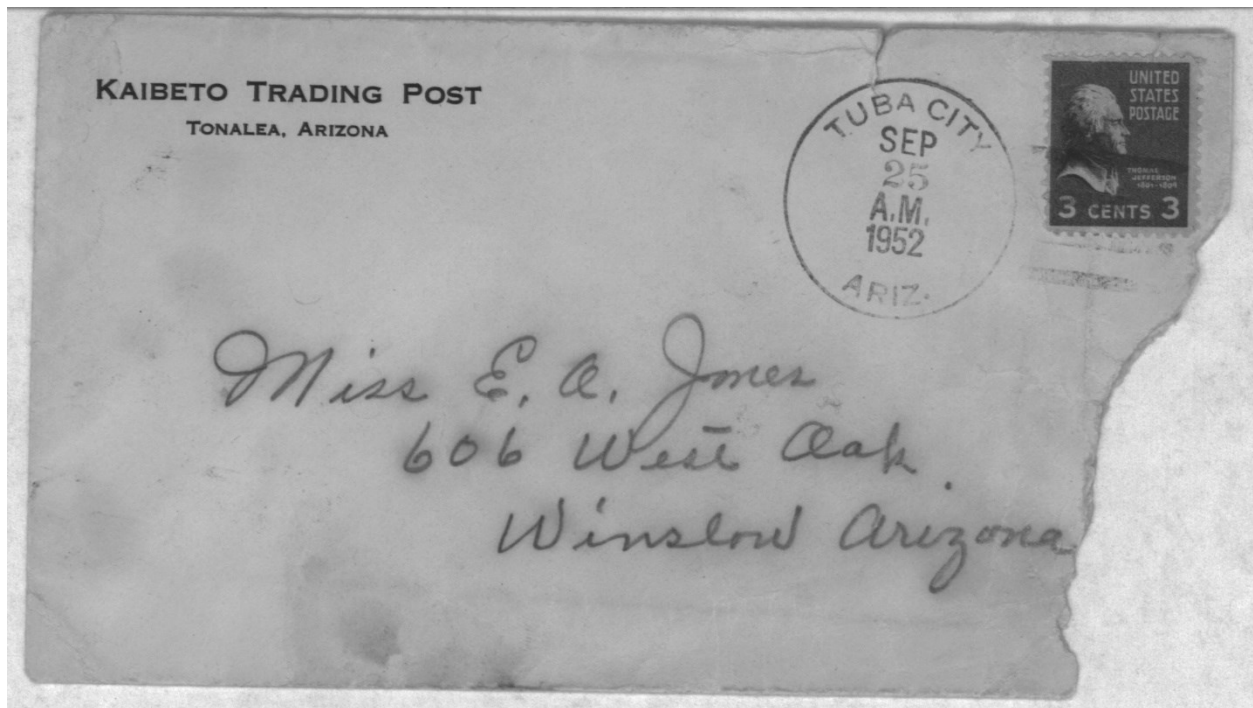 KAIBETO TRADING POST
TONALEA, ARIZONA
TUBA CITY
SEP
25
A.M.
1952
ARIZ.
UNITED
STATES
POSTAGE
THOMAS
JEFFERSON
1801-1809
3 CENTS 3
Miss E. A. Jones
606 West Oak.
Winslow Arizona